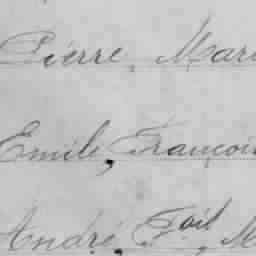 Pierre, Mari
Emile, Françoi
André, Toil, M